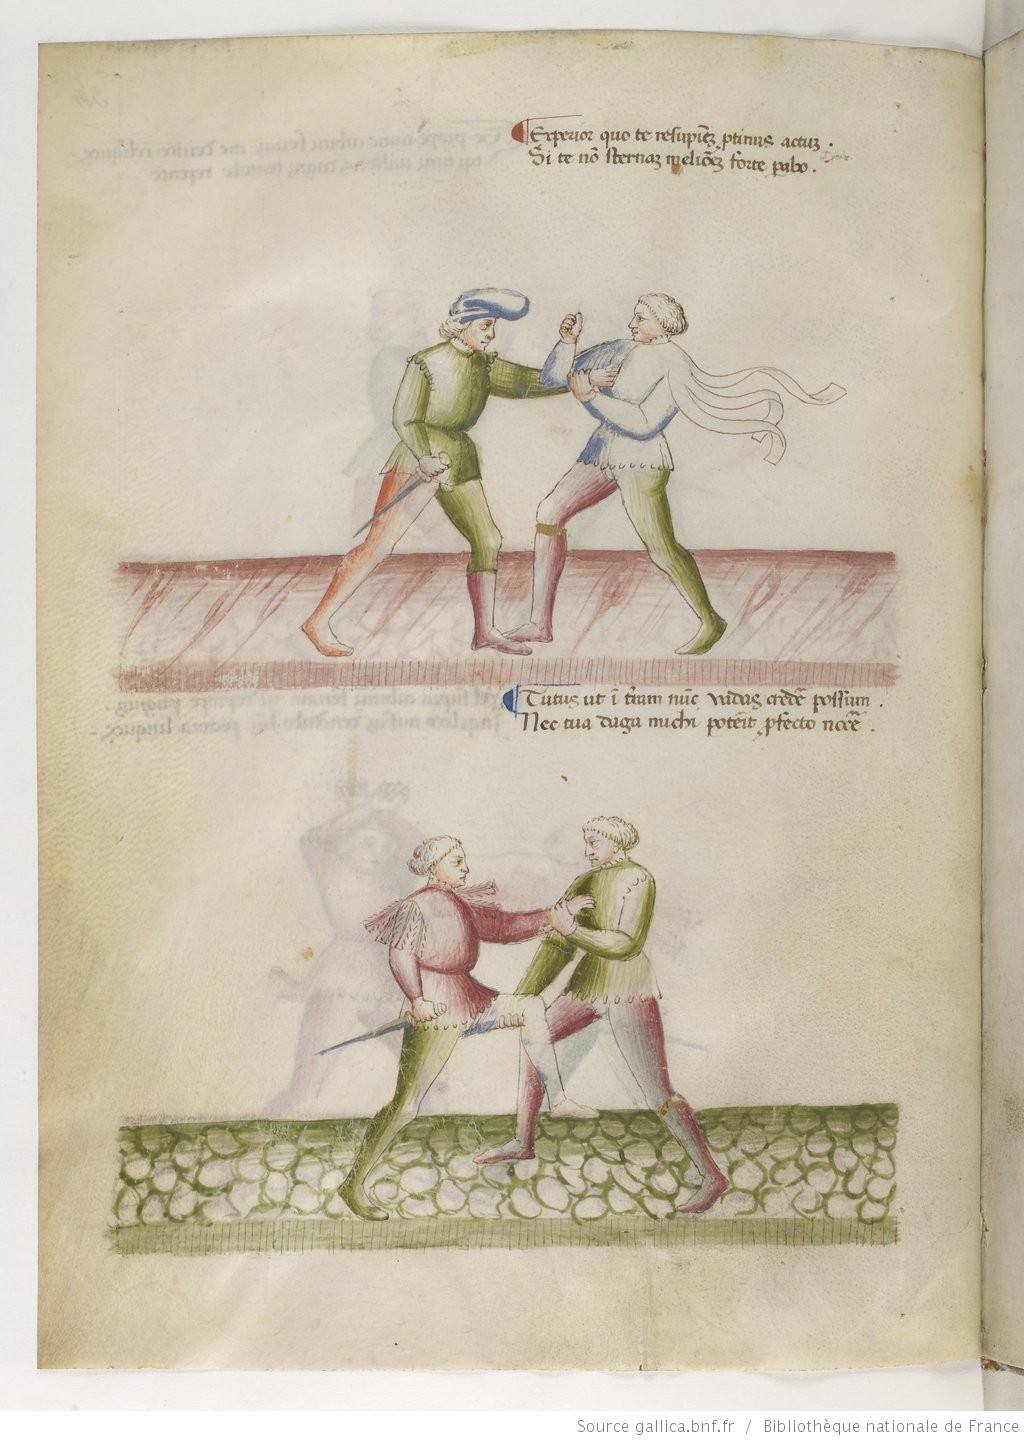 Experior quo te resupiēꝫ ꝓtinus actuꝫ .
Si te nō sternaꝫ meliōeꝫ forte pabo .
Tutus ut ī t̄ram nūc vadas credē possum .
Nec tua daga michi potēit ꝑfecto nocē .
Source gallica.bnf.fr / Bibliothèque nationale de France